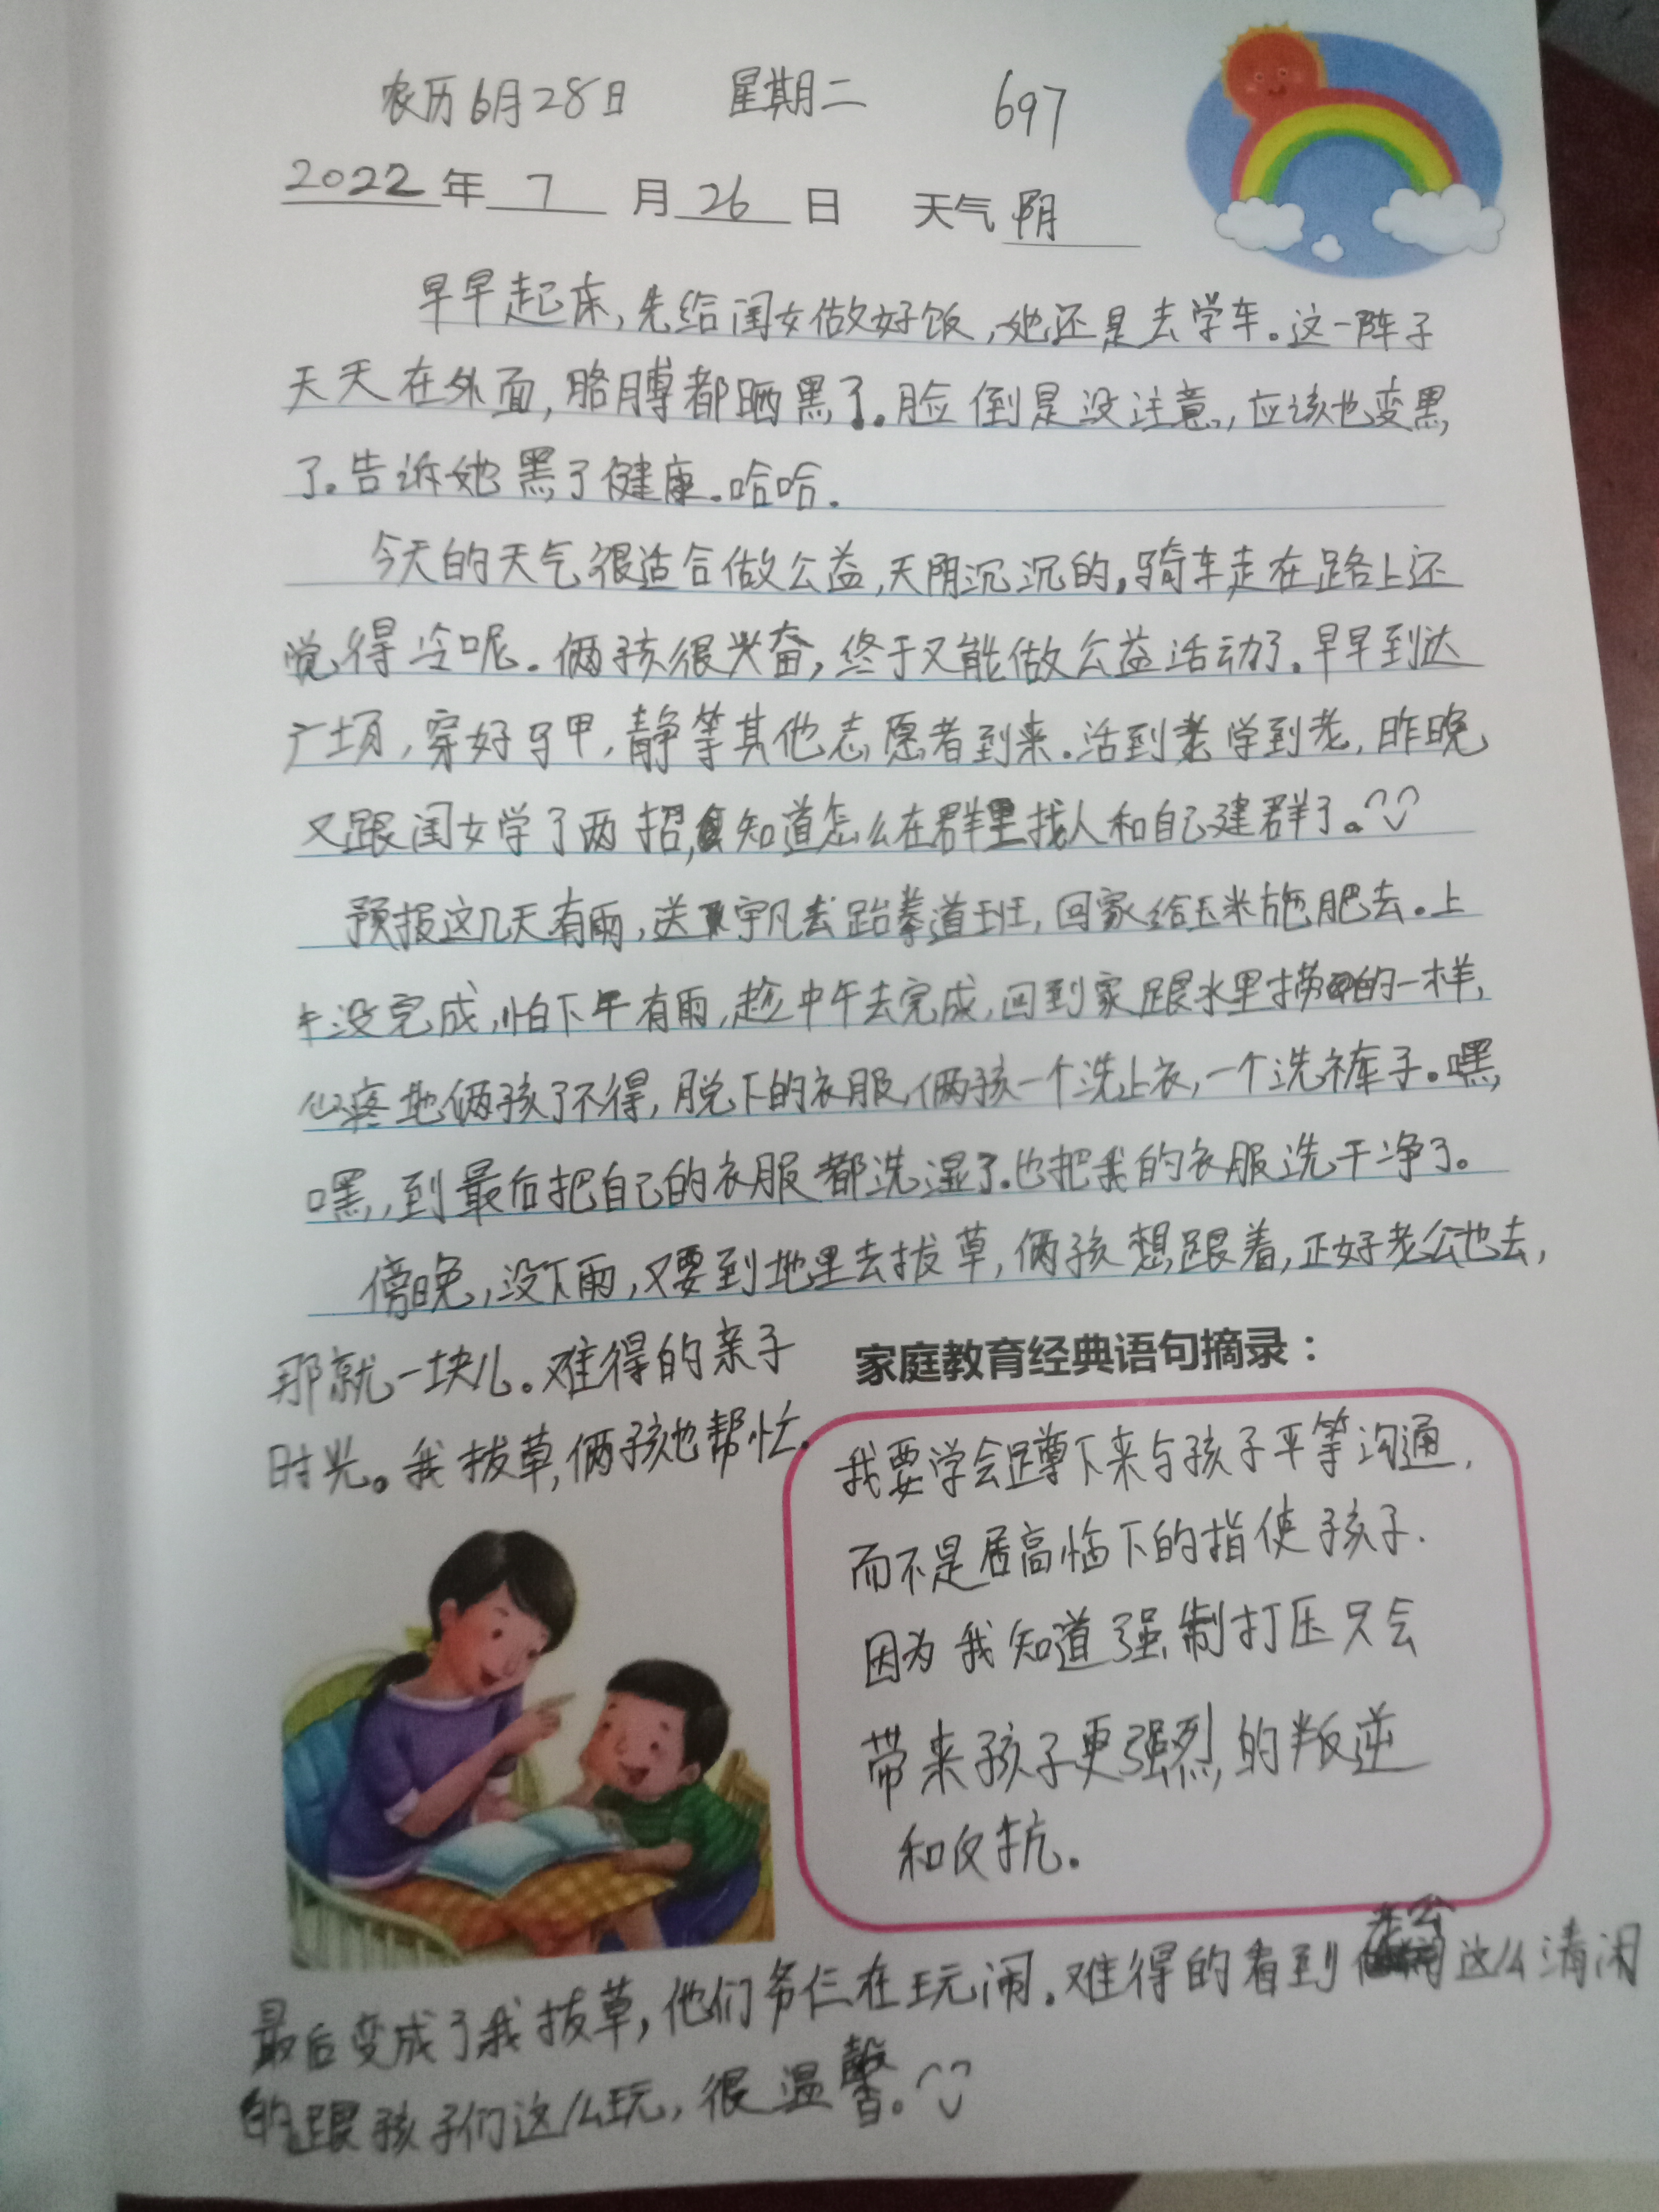 农历6月28日 星期二 697
2022年 7 月 26 日 天气 阴
早早起床,先给闺女做好饭,她还是去学车。这一阵子
天天在外面,胳膊都晒黑了。脸倒是没注意,应该也变黑
了。告诉她黑了健康。哈哈.
今天的天气很适合做公益,天阴沉沉的,骑车走在路上还
觉得冷呢。俩孩很兴奋,终于又能做公益活动了.早早到达
广场,穿好马甲,静等其他志愿者到来.活到老学到老,昨晚
又跟闺女学了两招,知道怎么在群里找人和自己建群了。
预报这几天有雨,送宇凡去跆拳道班,回家给玉米施肥去。上
午没完成,怕下午有雨,趁中午去完成,回到家跟水里捞的一样,
心疼地俩孩了不得,脱下的衣服,俩孩一个洗上衣,一个洗裤子。嘿,
嘿,到最后把自己的衣服都洗湿了.也把我的衣服洗干净了。
傍晚,没下雨,又要到地里去拔草,俩孩想跟着,正好老公也去,
那就一块儿。难得的亲子
时光。我拔草,俩孩也帮忙.
家庭教育经典语句摘录:
我要学会蹲下来与孩子平等沟通,
而不是居高临下的指使孩子.
因为我知道强制打压只会
带来孩子更强烈的叛逆
和反抗.
最后变成了我拔草,他们爷仨在玩闹.难得的看到老公这么清闲
的跟孩子们这么玩,很温馨。